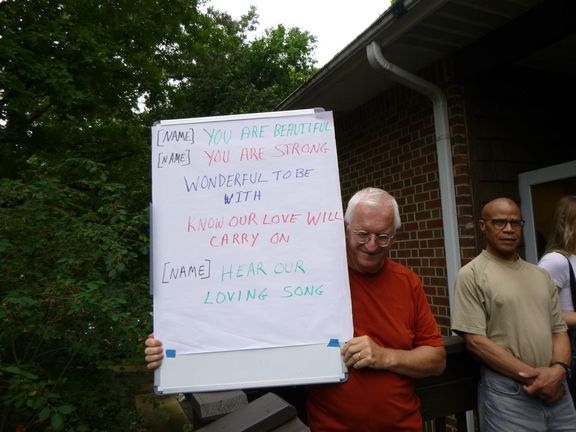 [NAME] YOU ARE BEAUTIFUL
[NAME] YOU ARE STRONG
WONDERFUL TO BE
WITH
KNOW OUR LOVE WILL
CARRY ON
[NAME] HEAR OUR
LOVING SONG